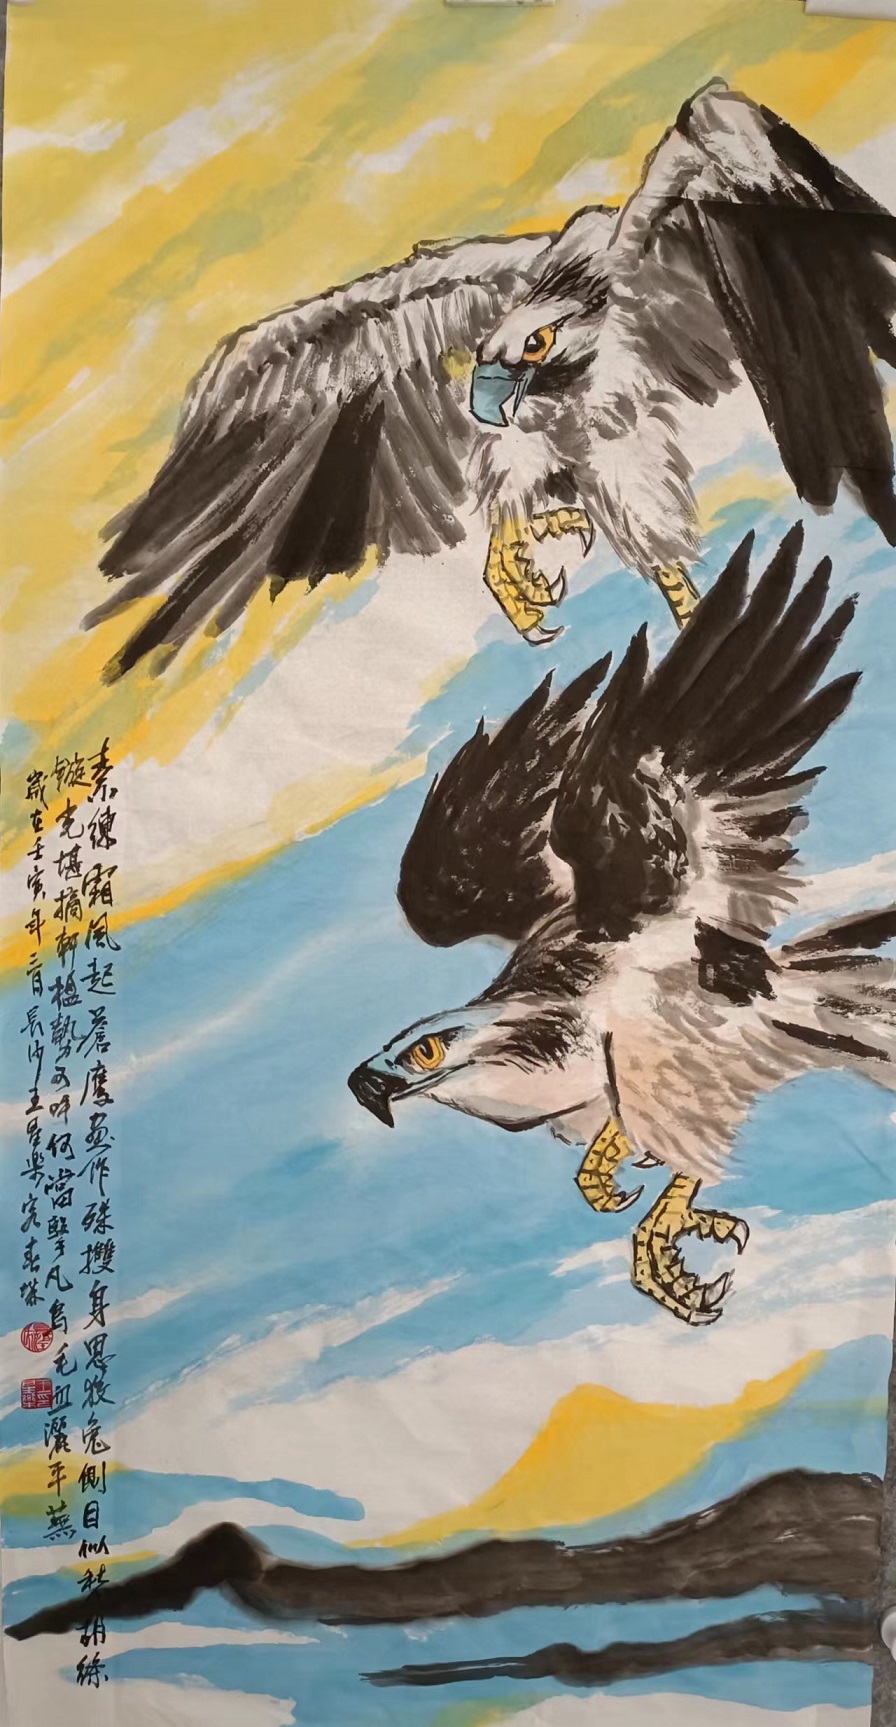 素練霜風起蒼鷹畫作殊㩳身思狡兔側目似愁胡絛
鏇光堪摘軒楹勢可呼何當擊凡鳥毛血灑平蕪
歲在壬寅年三月長沙王星樂寫